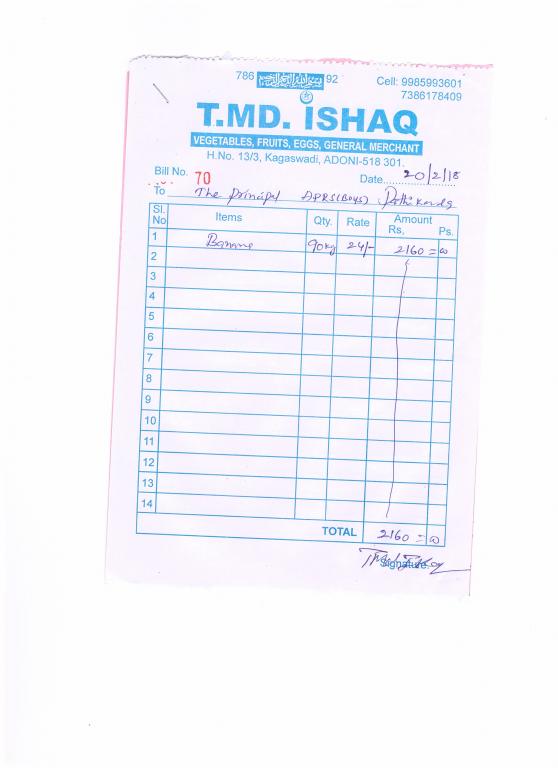 786 92
Cell: 9985993601
7386178409
T.MD. ISHAQ
VEGETABLES, FRUITS, EGGS, GENERAL MERCHANT
H.No. 13/3, Kagaswadi, ADONI-518 301.
Bill No. 70 Date 20/2/18
To The principal APRS(Boys)
Sl. No Items Qty. Rate Amount Rs, Ps.
1 Banana 90kg 24/- 2160 = 00
2
3
4
5
6
7
8
9
10
11
12
13
14
TOTAL 2160 = 00
Signature.